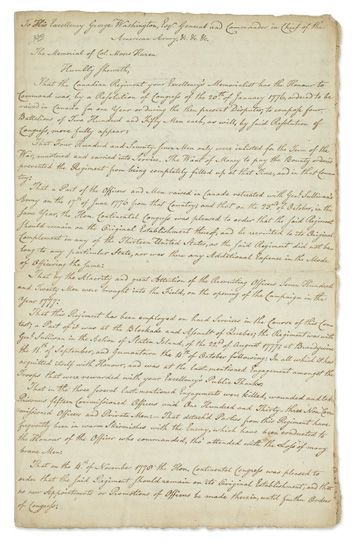 To His Excellency George Washington, Esqr. General and Commander in Chief of the
American Army, &. &. &.
The Memorial of Col. Moses Hazen
Humbly Sheweth,
That the Canadian Regiment your Excellency's Memorialist has the Honour to
Command was by a Resolution of Congress of the 20th of January 1776, ordered to be
raised in Canada for one Year or during the then present Dispute; to compose four
Battalions of Two Hundred and Fifty Men each, as will, by said Resolution of
Congress, more fully appear:
That Four Hundred and Seventy seven Men only were inlisted for the Term of the
War, mustered and carried into Service. The Want of Money to pay the Bounty ordered
prevented the Regiment from being compleatly filled up at that Time, and in that Coun-
try:
That a Part of the Officers and Men raised in Canada retreated with Genl. Sullivan's
Army on the 17th of June 1776 from that Country; and that on the 23rd of October, in the
same Year, the Hon. Continental Congress was pleased to order that the said Regiment
should remain on the Original Establishment thereof, and be recruited to its Original
Complement in any of the Thirteen United States, as the said Regiment did not be-
long to any particular State, nor was there any Additional Expence in the Mode
of Officering the same:
That by the Alacrity and great Attention of the Recruiting Officers Seven Hundred
and Twenty Men were brought into the Field, on the opening of the Campaign in the
Year 1777:
That this Regiment has been employed on hard Services in the Course of this Con-
test; a Part of it was at the Blockade and Assault of Quebec; the Regiment was with
Genl. Sullivan in the Action of Staten Island, of the 22d of August 1777, at Brandywine
the 11th of September, and Germantown the 4th of October following: In all which it has
acquitted itself with Honour, and was at the last mentioned Engagement amongst the
Troops that were rewarded with your Excellency's Public Thanks.
That in the three several last mentioned Engagements were killed, wounded and taken
Prisoners fifteen Commissioned Officers and One Hundred and Thirty three Non Com-
missioned Officers and Private Men: That detached Parties from this Regiment have
frequently been in warm Skirmishes with the Enemy, which have been conducted to
the Honour of the Officer who commanded, tho' attended with the Loss of many
brave Men:
That on the 4th of November 1778 the Hon. Continental Congress was pleased to
order that the said Regiment should remain on its Original Establishment, and that
no new Appointments or Promotions of Officers be made therein, until further Orders
of Congress: